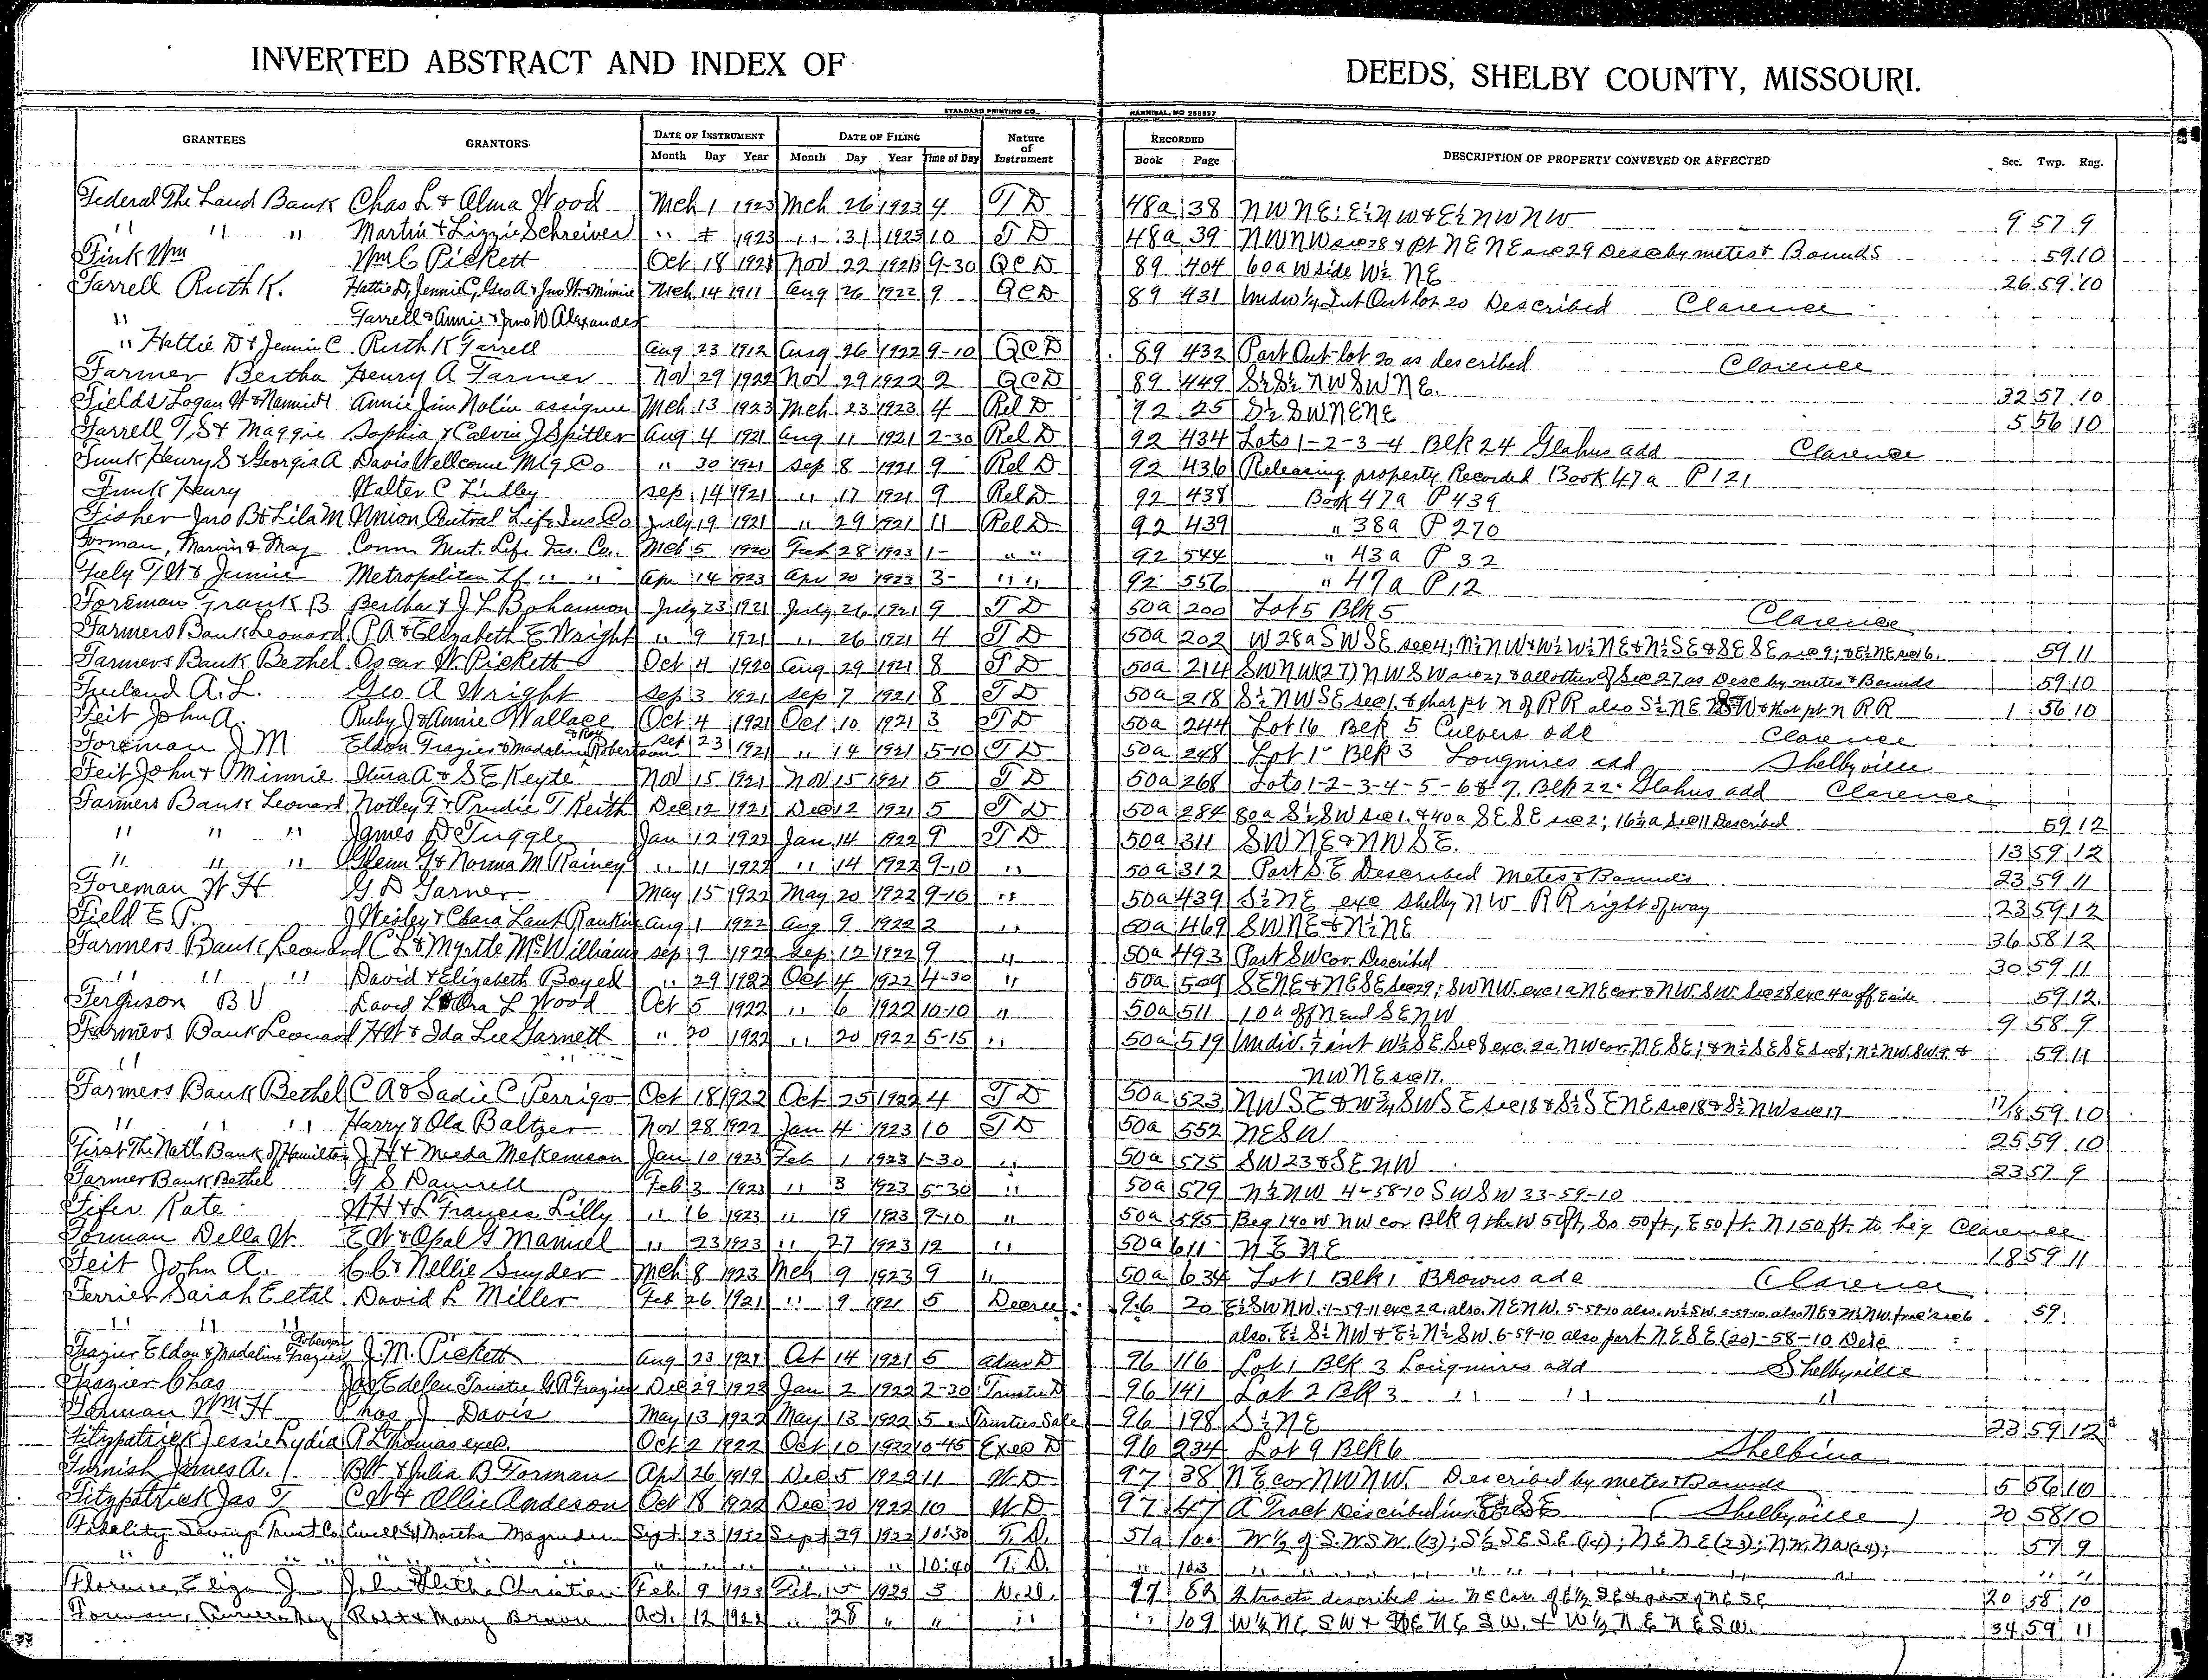 INVERTED ABSTRACT AND INDEX OF DEEDS, SHELBY COUNTY, MISSOURI.
STANDARD PRINTING CO., HANNIBAL, MO 255897
GRANTEES GRANTORS DATE OF INSTRUMENT DATE OF FILING Nature of Instrument RECORDED DESCRIPTION OF PROPERTY CONVEYED OR AFFECTED Sec. Twp. Rng.
Month Day Year Month Day Year Time of Day Book Page
Federal The Land Bank Chas L & Alma Wood Mch 1 1923 Mch 26 1923 4 T D 48a 38 NWNE; E½NW & E½NWNW 9 57 9
" " " Martin & Lizzie Schreiver " 1923 " 31 1923 10 T D 48a 39 NWNW sec 28 & pt NENE sec 29 Desc by metes & Bounds 59 10
Fink Wm Wm C Pickett Oct 18 Nov 22 9-30 QCD 89 404 60a W side W½ NE 26 59 10
Farrell Ruth K. Hattie D, Jennie C, Geo A & Jno W & Minnie Mch 14 1911 Aug 26 1922 9 QCD 89 431 Undiv ¼ Int Out lot 20 Described Clarence
" Farrell & Annie & Jno W Alexander
" Hattie D & Jennie C Ruth K Farrell Aug 23 1912 Aug 26 1922 9-10 QCD 89 432 Part Out lot 20 as described Clarence
Farmer Bertha Henry A Farmer Nov 29 1922 Nov 29 1922 2 QCD 89 449 S½S½ NWSWNE. 32 57 10
Fields Logan W & Nannie H Annie Jim Nolin assignee Mch 13 1923 Mch 23 1923 4 Rel D 92 25 S½ SWNENE 5 56 10
Farrell T. S & Maggie Sophia & Calvin J Spitler Aug 4 1921 Aug 11 1921 2-30 Rel D 92 434 Lots 1-2-3-4 Blk 24 Glahns add Clarence
Funk Henry S & Georgia A Davis Wellcome Mtg Co " 30 1921 Sep 8 1921 9 Rel D 92 436 Releasing property Recorded Book 47a P 121
Funk Henry Walter C Lindley Sep 14 1921 " 17 1921 9 Rel D 92 438 Book 47a P 439
Fisher Jno B & Lila M Union Central Life Ins Co July 19 1921 " 29 1921 11 Rel D 92 439 " 38a P 270
Forman, Marvin & May Conn. Mut. Life Ins. Co. Mch 5 1920 Feb 28 1923 1- " " 92 544 " 43a P 32
Feely T W & Jennie Metropolitan Lf " " Apr 14 1923 Apr 20 1923 3- " " 92 556 " 47a P 12
Foreman Frank B Bertha & J L Bohannon July 23 1921 July 26 1921 9 T D 50a 200 Lot 5 Blk 5 Clarence
Farmers Bank Leonard P A & Elizabeth E Wright " 9 1921 " 26 1921 4 T D 50a 202 W 28a SWSE sec 4; N½NW & W½W½NE & N½SE & SESE sec 9; & E½NE sec 16. 59 11
Farmers Bank Bethel Oscar W. Pickett Oct 4 1920 Aug 29 1921 8 T D 50a 214 SWNW (27) NWSW sec 27 & all other of Sec 27 as Desc by metes & Bounds 59 10
Freeland A. L. Geo A Wright Sep 3 1921 Sep 7 1921 8 T D 50a 218 S½ NWSE sec 1. & that pt N of RR also S½ NE SW & that pt N RR 1 56 10
Feit John A. Ruby J & Annie Wallace Oct 4 1921 Oct 10 1921 3 T D 50a 244 Lot 16 Blk 5 Culvers add Clarence
Foreman J M Eldon Frazier & Madaline & Roy Robertson Sep 23 1921 " 14 1921 5-10 T D 50a 248 Lot 1 Blk 3 Longmires add Shelbyville
Feit John & Minnie Itina A & S E Keyte Nov 15 1921 Nov 15 1921 5 T D 50a 268 Lots 1-2-3-4-5-6 & 7. Blk 22 Glahns add Clarence
Farmers Bank Leonard Notley F & Prudie T Keith Dec 12 1921 Dec 12 1921 5 T D 50a 284 80a S½SW sec 1. & 40a SESE sec 2; 16½a Sec 11 Described 59 12
" " " James D Tuggle Jan 12 1922 Jan 14 1922 9 T D 50a 311 SWNE & NWSE. 13 59 12
" " " Glenn G & Norma M Rainey " 11 1922 " 14 1922 9-10 " 50a 312 Part SE Described Metes & Bounds 23 59 11
Foreman W H G D Garner May 15 1922 May 20 1922 9-10 " 50a 439 S½NE exc Shelby NW RR right of way 23 59 12
Field E P. J Wesley & Clara Lant Rankin Aug 1 1922 Aug 9 1922 2 " 50a 469 SWNE & N½NE 36 58 12
Farmers Bank Leonard C L & Myrtle McWilliams Sep 9 1922 Sep 12 1922 9 " 50a 493 Part SW cor. Described 30 59 11
" " " David & Elizabeth Boyed " 29 1922 Oct 4 1922 4-30 " 50a 509 SENE & NESE sec 29; SWNW. exc 1a NE cor. & NW. SW. Sec 28 exc 4a off E side 59 12.
Ferguson B V David L & Ora L Wood Oct 5 1922 " 6 1922 10-10 " 50a 511 10a off N end SENW 9 58 9
Farmers Bank Leonard H W & Ida Lee Garnett " 20 1922 " 20 1922 5-15 " 50a 519 Undiv. 1/7 int W½SE Sec 8 exc. 2a NW cor. NESE; & N½SESE sec 8; N½NW.SW. 9 & 59 11
" NWNE sec 17.
Farmers Bank Bethel C A & Sadie C Perrigo Oct 18 1922 Oct 25 1922 4 T D 50a 523 NWSE & W¾SWSE sec 18 & S½SENE sec 18 & S½NW sec 17 17/18 59 10
" " " Harry & Ola Baltzer Nov 28 1922 Jan 4 1923 10 T D 50a 552 NESW 25 59 10
First The Natl Bank of Hamilton J H & Meeda McKemson Jan 10 1923 Feb 1 1923 1-30 " 50a 575 SW 23 & SENW 23 57 9
Farmer Bank Bethel G S Danrell Feb 3 1923 " 3 1923 5-30 " 50a 579 N½NW 4-58-10 SWSW 33-59-10
Fifer Kate W H & L Francis Lilly " 16 1923 " 19 1923 9-10 " 50a 595 Beg 140 W NW cor Blk 9 the W 50 ft, So 50 ft, E 50 ft. N 150 ft. to beg Clarence
Forman Della W E W & Opal G Manuel " 23 1923 " 27 1923 12 " 50a 611 NENE 18 59 11
Feit John A. C C & Nellie Snyder Mch 8 1923 Mch 9 1923 9 " 50a 634 Lot 1 Blk 1 Browns add Clarence
Ferrier Sarah E etal David L Miller Feb 26 1921 " 9 1921 5 Decree 96 20 E½SWNW. 1-59-11 exc 2a. also. NENW. 5-59-10 also. W½SW. 5-59-10. also 59
" " " also. E½ S½ NW & E½ N½ SW 6-59-10 also part NESE (20)-58-10 Desc
Frazier Eldon & Madaline Frazier Roberson J. M. Pickett Aug 23 1921 Oct 14 1921 5 Admr D 96 116 Lot 1 Blk 3 Longmires add Shelbyville
Frazier Chas Jas Edelen Trustee G R Frazier Dec 29 Jan 2 1922 2-30 Trustee D 96 141 Lot 2 Blk 3 " " "
Forman Wm H Chas J Davis May 13 1922 May 13 1922 5 Trustees Sale 96 198 S½NE 23 59 12
Fitzpatrick Jessie Lydia R L Thomas exec. Oct 2 1922 Oct 10 1922 10-45 Exec D 96 234 Lot 9 Blk 6 Shelbina
Furnish James A. B W & Julia B Forman Apr 26 1919 Dec 5 1922 11 W D 97 38 NE cor NWNW. Described by metes & Bounds 5 56 10
Fitzpatrick Jas T C W & Ollie Andeson Oct 18 1922 Dec 20 1922 10 W D 97 47 A Tract Described in E½SE (Shelbyville) 20 58 10
Fidelity Savings Trust Co Ewell & Martha Magruder Sept 23 1922 Sept 29 1922 10:30 T. D. 51a 100 W½ of S.W.SW. (13); S½ SESE (14); NENE (23); NW.NW (24); 57 9
" " " " " " " " " " " 10:40 T. D. " 103 " " " " " " "
Florence, Eliza J. John Christian Feb. 9 1923 Feb. 1923 3 W.D. 97 82 2 tracts described in NE Cor. of E½ SE & part of NESE 20 58 10
Forman, May Robt & Mary Brown Oct. 12 1922 " 28 " " " " 109 W½ NE SW & NENESW. & W½ NENESW. 34 59 11